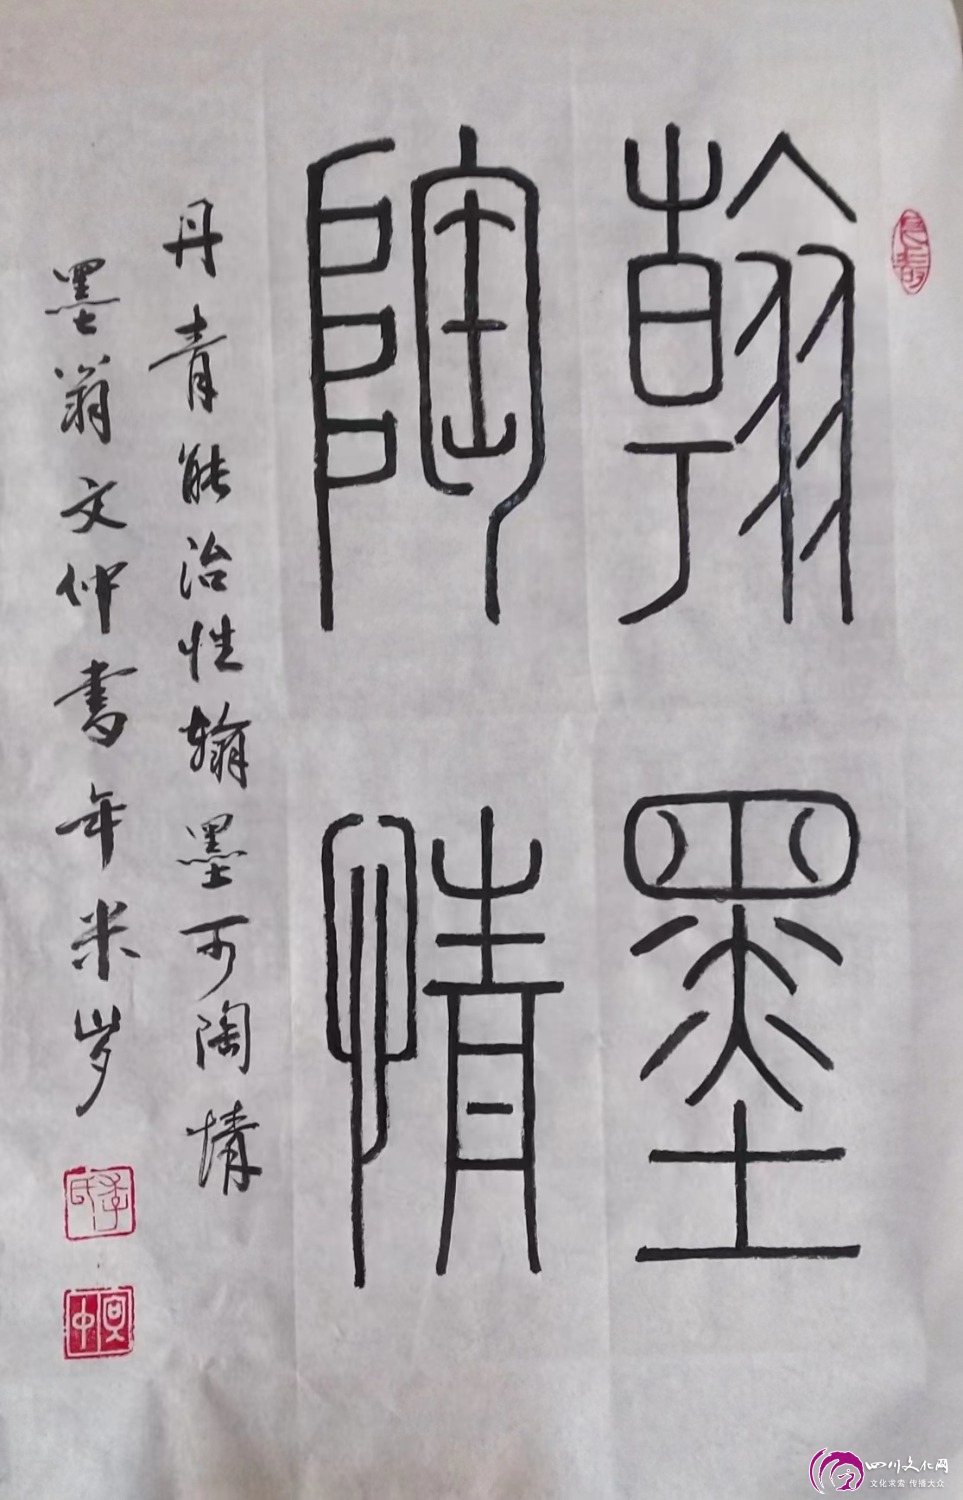 翰墨
陶情
丹青能治性翰墨可陶情
墨翁文仲書年米岁
四川文化网
文化求索 传播大众